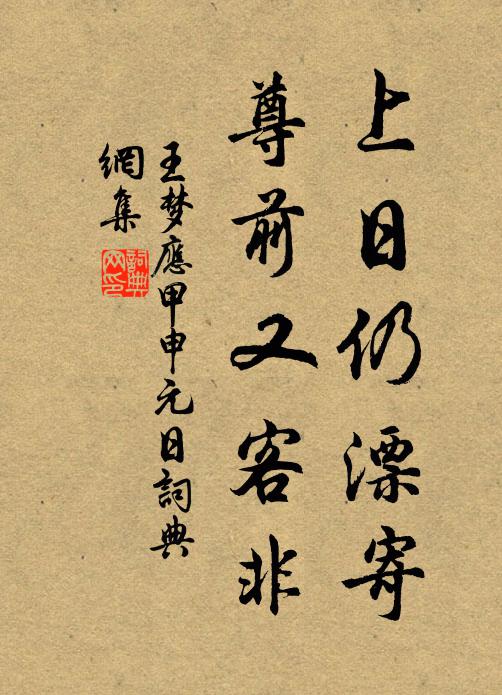 上日仍漂寄
尊前又客非
王梦應甲申元日詞典
網集
詞典
网印